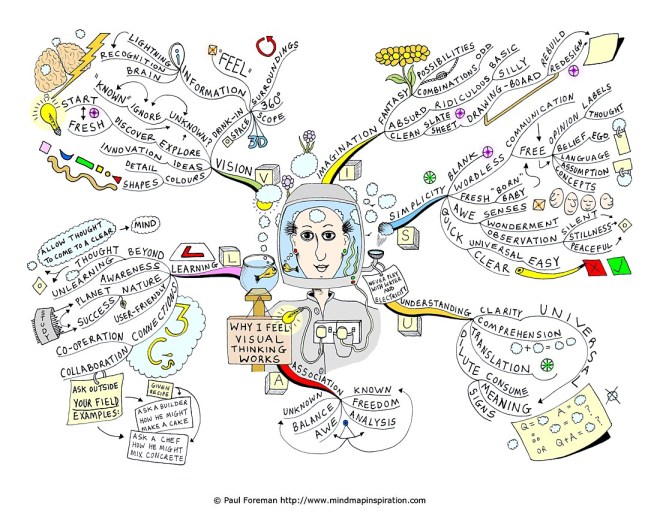 LIGHTNING
RECOGNITION
BRAIN
INFORMATION
"FEEL"
SURROUNDINGS
360°
SCOPE
DRINK-IN
SPACE
3D
"KNOWN"
IGNORE
UNKNOWN?
START
FRESH
DISCOVER
EXPLORE
INNOVATION
IDEAS
DETAIL
SHAPES
COLOURS
VISION
V
IMAGINATION
I
FANTASY
POSSIBILITIES
COMBINATIONS
ODD
ABSURD
RIDICULOUS
SILLY
BASIC
CLEAN
SLATE
SHEET
DRAWING-BOARD
REBUILD
REDESIGN
SIMPLICITY
S
BLANK
WORDLESS
COMMUNICATION
FREE
OPINION
LABELS
THOUGHT
BELIEF
EGO
LANGUAGE
ASSUMPTION
CONCEPTS
FRESH
"BORN"
BABY
AWE
SENSES
WONDERMENT
OBSERVATION
SILENT
STILLNESS
PEACEFUL
QUICK
UNIVERSAL
EASY
CLEAR
ALLOW THOUGHT
TO COME TO A CLEAR
MIND
THOUGHT
BEYOND
UNLEARNING
AWARENESS
PLANET
NATURE
SUCCESS
USER-FRIENDLY
STUDY
CO-OPERATION
CONNECTIONS
COLLABORATION
3 C's
LEARNING
L
L
ASK OUTSIDE
YOUR FIELD
EXAMPLES:
GIVEN
RECIPE
ASK A BUILDER
HOW HE MIGHT
MAKE A CAKE
ASK A CHEF
HOW HE MIGHT
MIX CONCRETE
WHY I FEEL
VISUAL
THINKING
WORKS
NEVER PLAY
WITH WATER
AND
ELECTRICITY
UNDERSTANDING
U
CLARITY
COMPREHENSION
UNIVERSAL
TRANSLATION
DILUTE
CONSUME
MEANING
SIGNS
Q = A = ?
OR
Q + A = ?
ASSOCIATION
A
UNKNOWN
KNOWN
BALANCE
FREEDOM
AWE
ANALYSIS
© Paul Foreman http://www.mindmapinspiration.com